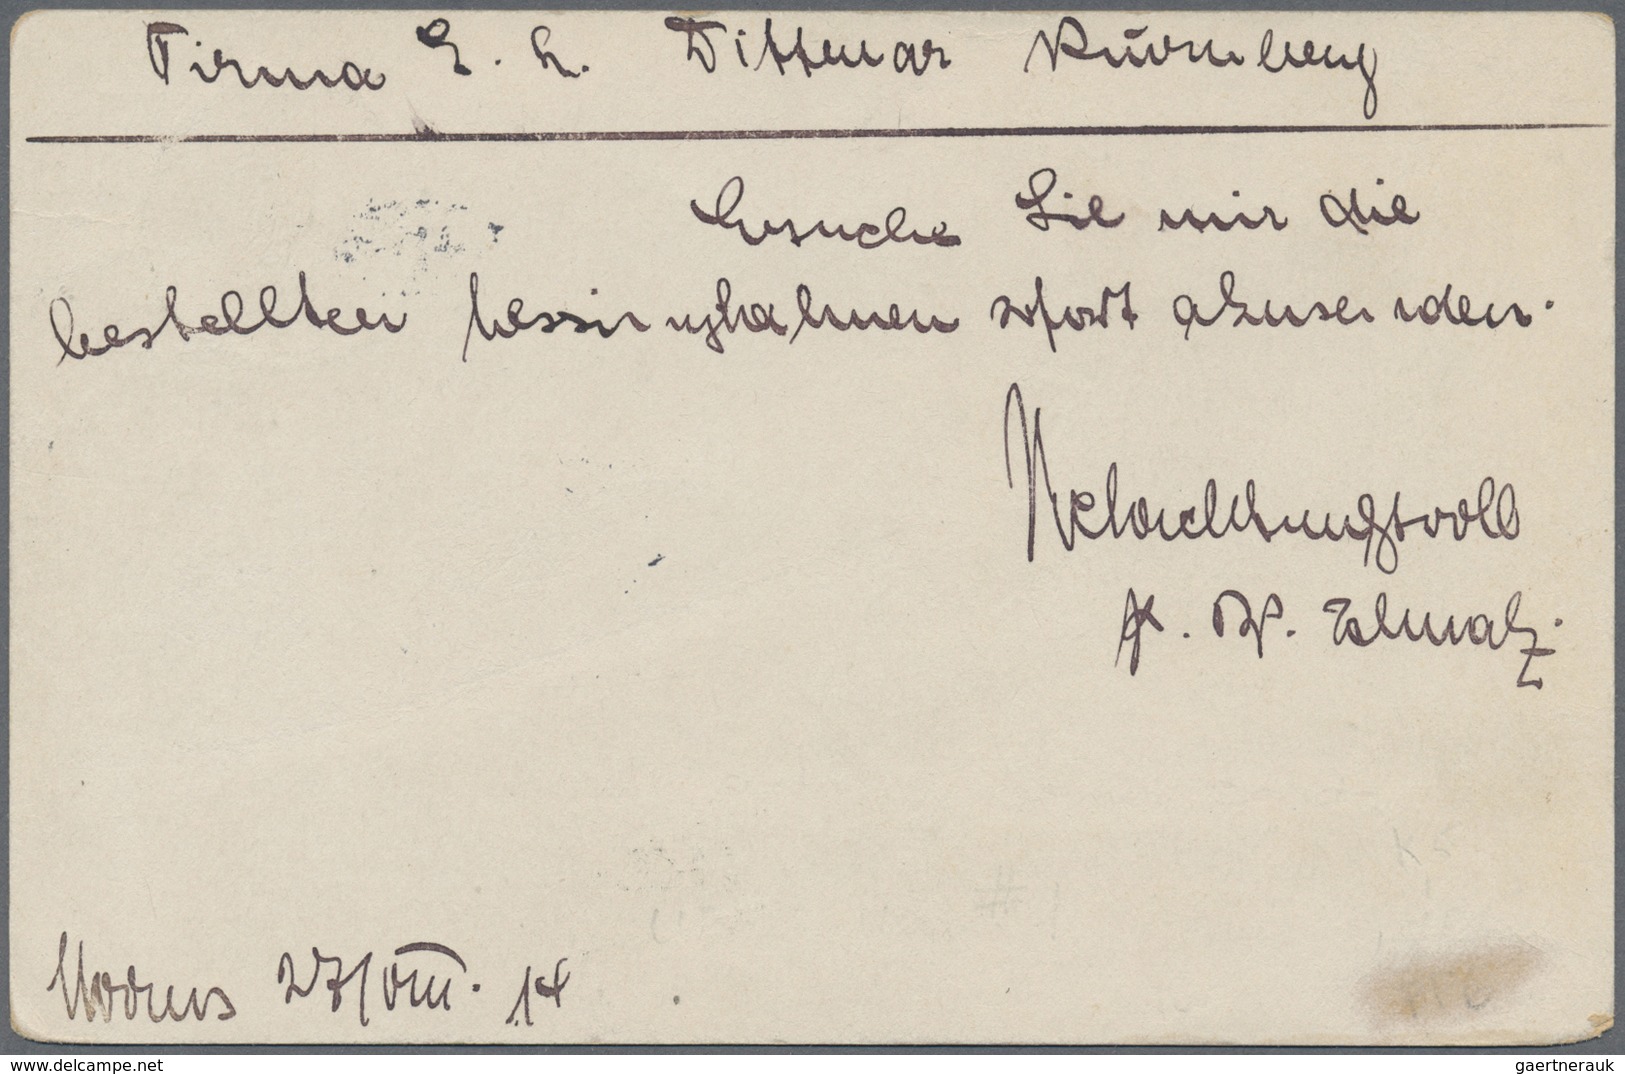 Firma E. L. Dittmar Nürnberg
Ersuche Sie mir die
bestellten Messinghahnen sofort abzusenden.
Hochachtungsvoll
27/VIII. 14
gaertnerauk